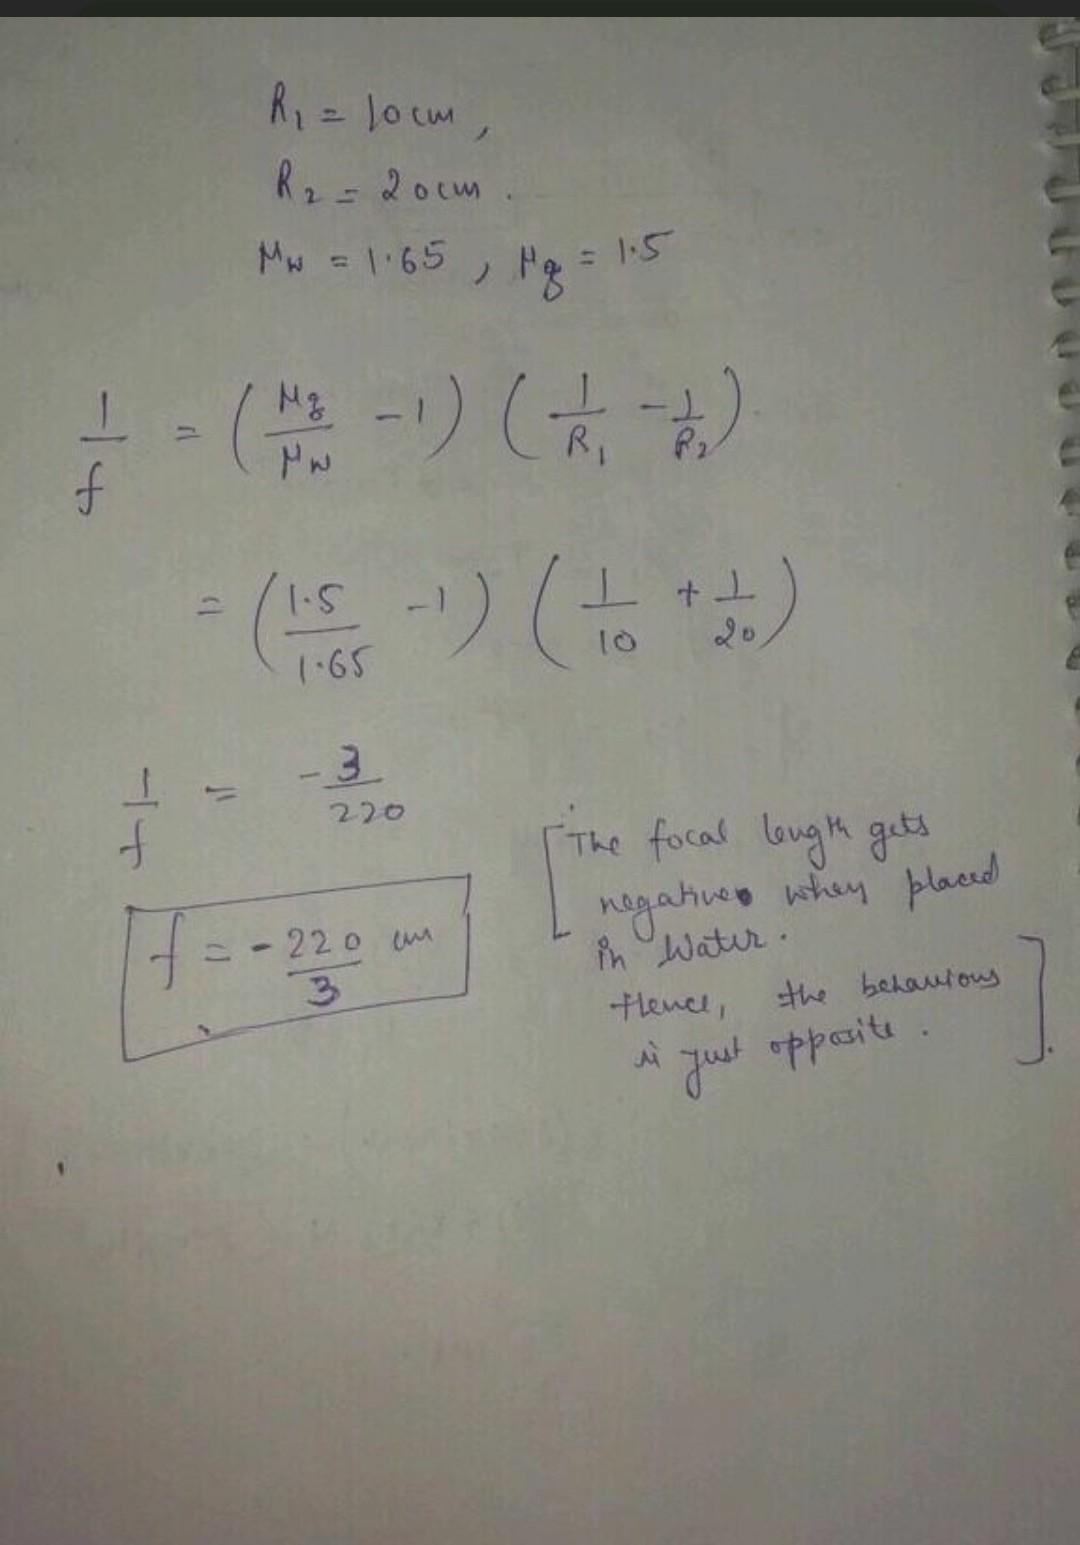 R₁ = 10cm,
R₂ = 20cm.
μw = 1.65, μg = 1.5
1/f = (μg/μw - 1) (1/R₁ - 1/R₂)
= (1.5/1.65 - 1) (1/10 + 1/20)
1/f = -3/220
f = -220/3 cm
[The focal length gets
negative when placed
in water.
Hence, the behavious
is just opposite.]